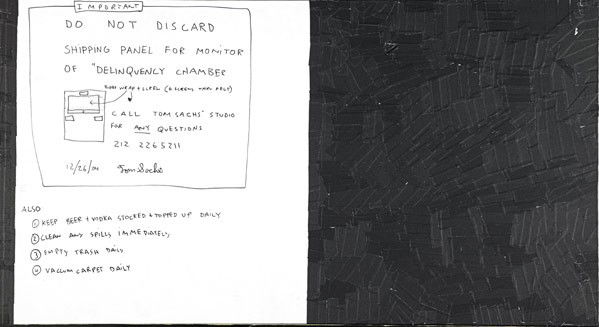 IMPORTANT
DO NOT DISCARD
SHIPPING PANEL FOR MONITOR
OF "DELINQUENCY CHAMBER
CALL TOM SACHS' STUDIO
FOR ANY QUESTIONS
212 2265211
Tom Sachs
ALSO
① KEEP BEER + VODKA STOCKED + TOPPED UP DAILY
② CLEAN ANY SPILLS IMMEDIATELY
③ EMPTY TRASH DAILY
④ VACUUM CARPET DAILY